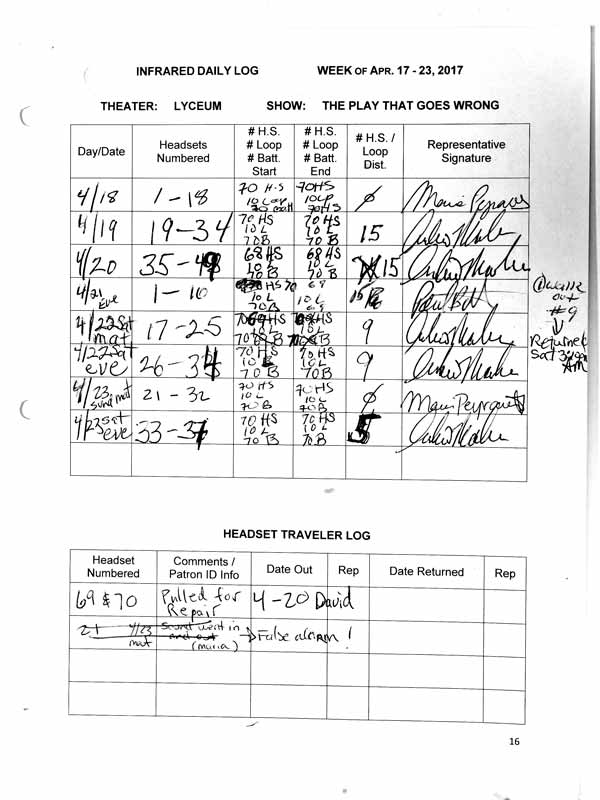 INFRARED DAILY LOG WEEK OF APR. 17 - 23, 2017
THEATER: LYCEUM SHOW: THE PLAY THAT GOES WRONG
Day/Date Headsets Numbered # H.S. # Loop # Batt. Start # H.S. # Loop # Batt. End # H.S. / Loop Dist. Representative Signature
4/18 1-18 70 H.S 10 Loop 70 Batt 70HS 10LP 70HS ø
4/19 19-34 70 HS 10 L 70B 70 HS 10 L 70 B 15
4/20 35-49 68 HS 10 L 70 B 68 HS 10 L 70 B 15
4/21 Eve 1-10 HS 70 10 L 70B 69 10 L 69
@ walk out #9
Returned Sat AM
4/22 Sat mat 17-25 HS 10 L HS 10 L 9
4/22 Sat eve 26-34 70 HS 10 L 70 B 70 HS 10 L 70B 9
4/23, sund mat 21-32 70 HS 10 L 70 B 70 HS 10 L 70B ø Maria
4/23 sat eve 33-37 70 HS 10 L 70 B 70 HS 10 L 70 B 5
HEADSET TRAVELER LOG
Headset Numbered Comments / Patron ID Info Date Out Rep Date Returned Rep
69 & 70 Pulled for Repair 4-20 David
21 4/23 mat went in and out (maria) → False alarm !
16